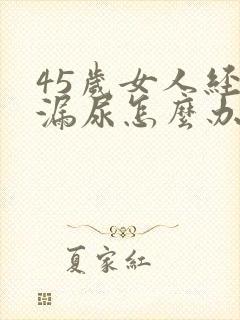 45歲女人経
漏尿怎麼办
夏家紅